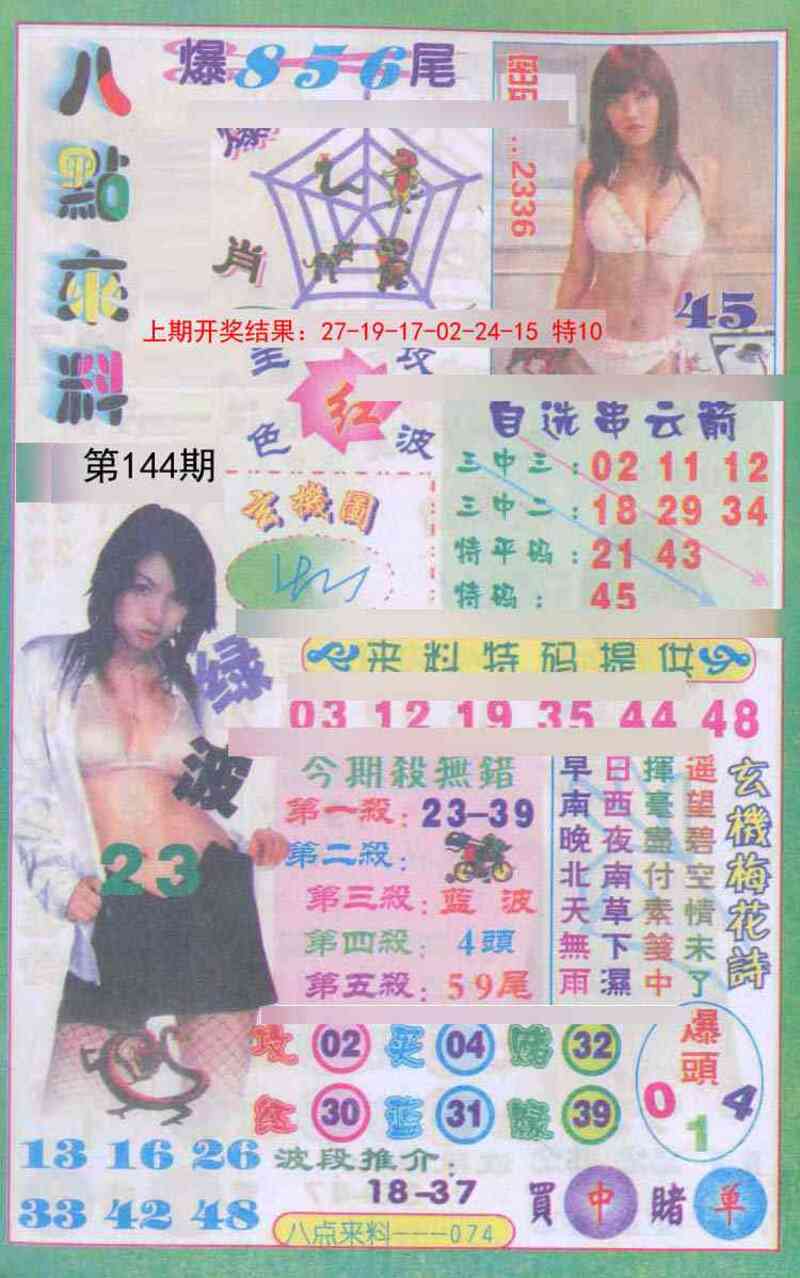 八點來料
爆856尾
爆肖
…2336
45
上期开奖结果：27-19-17-02-24-15 特10
全攻
红
色波
第144期
自选串云箭
三中三：02 11 12
三中二：18 29 34
特平码：21 43
特码：45
玄機圖
来料特码提供
03 12 19 35 44 48
绿波
23
今期殺無錯
第一殺：23-39
第二殺：
第三殺：蓝波
第四殺：4頭
第五殺：59尾
玄機梅花詩
遥望碧空情未了
揮毫盡付素箋中
日西夜南草下濕
早南晚北天無雨
攻02买04赌32
红30蓝31緑39
爆頭
0 1 4
13 16 26
33 42 48
波段推介：
18-37
買中賭单
八点来料---074